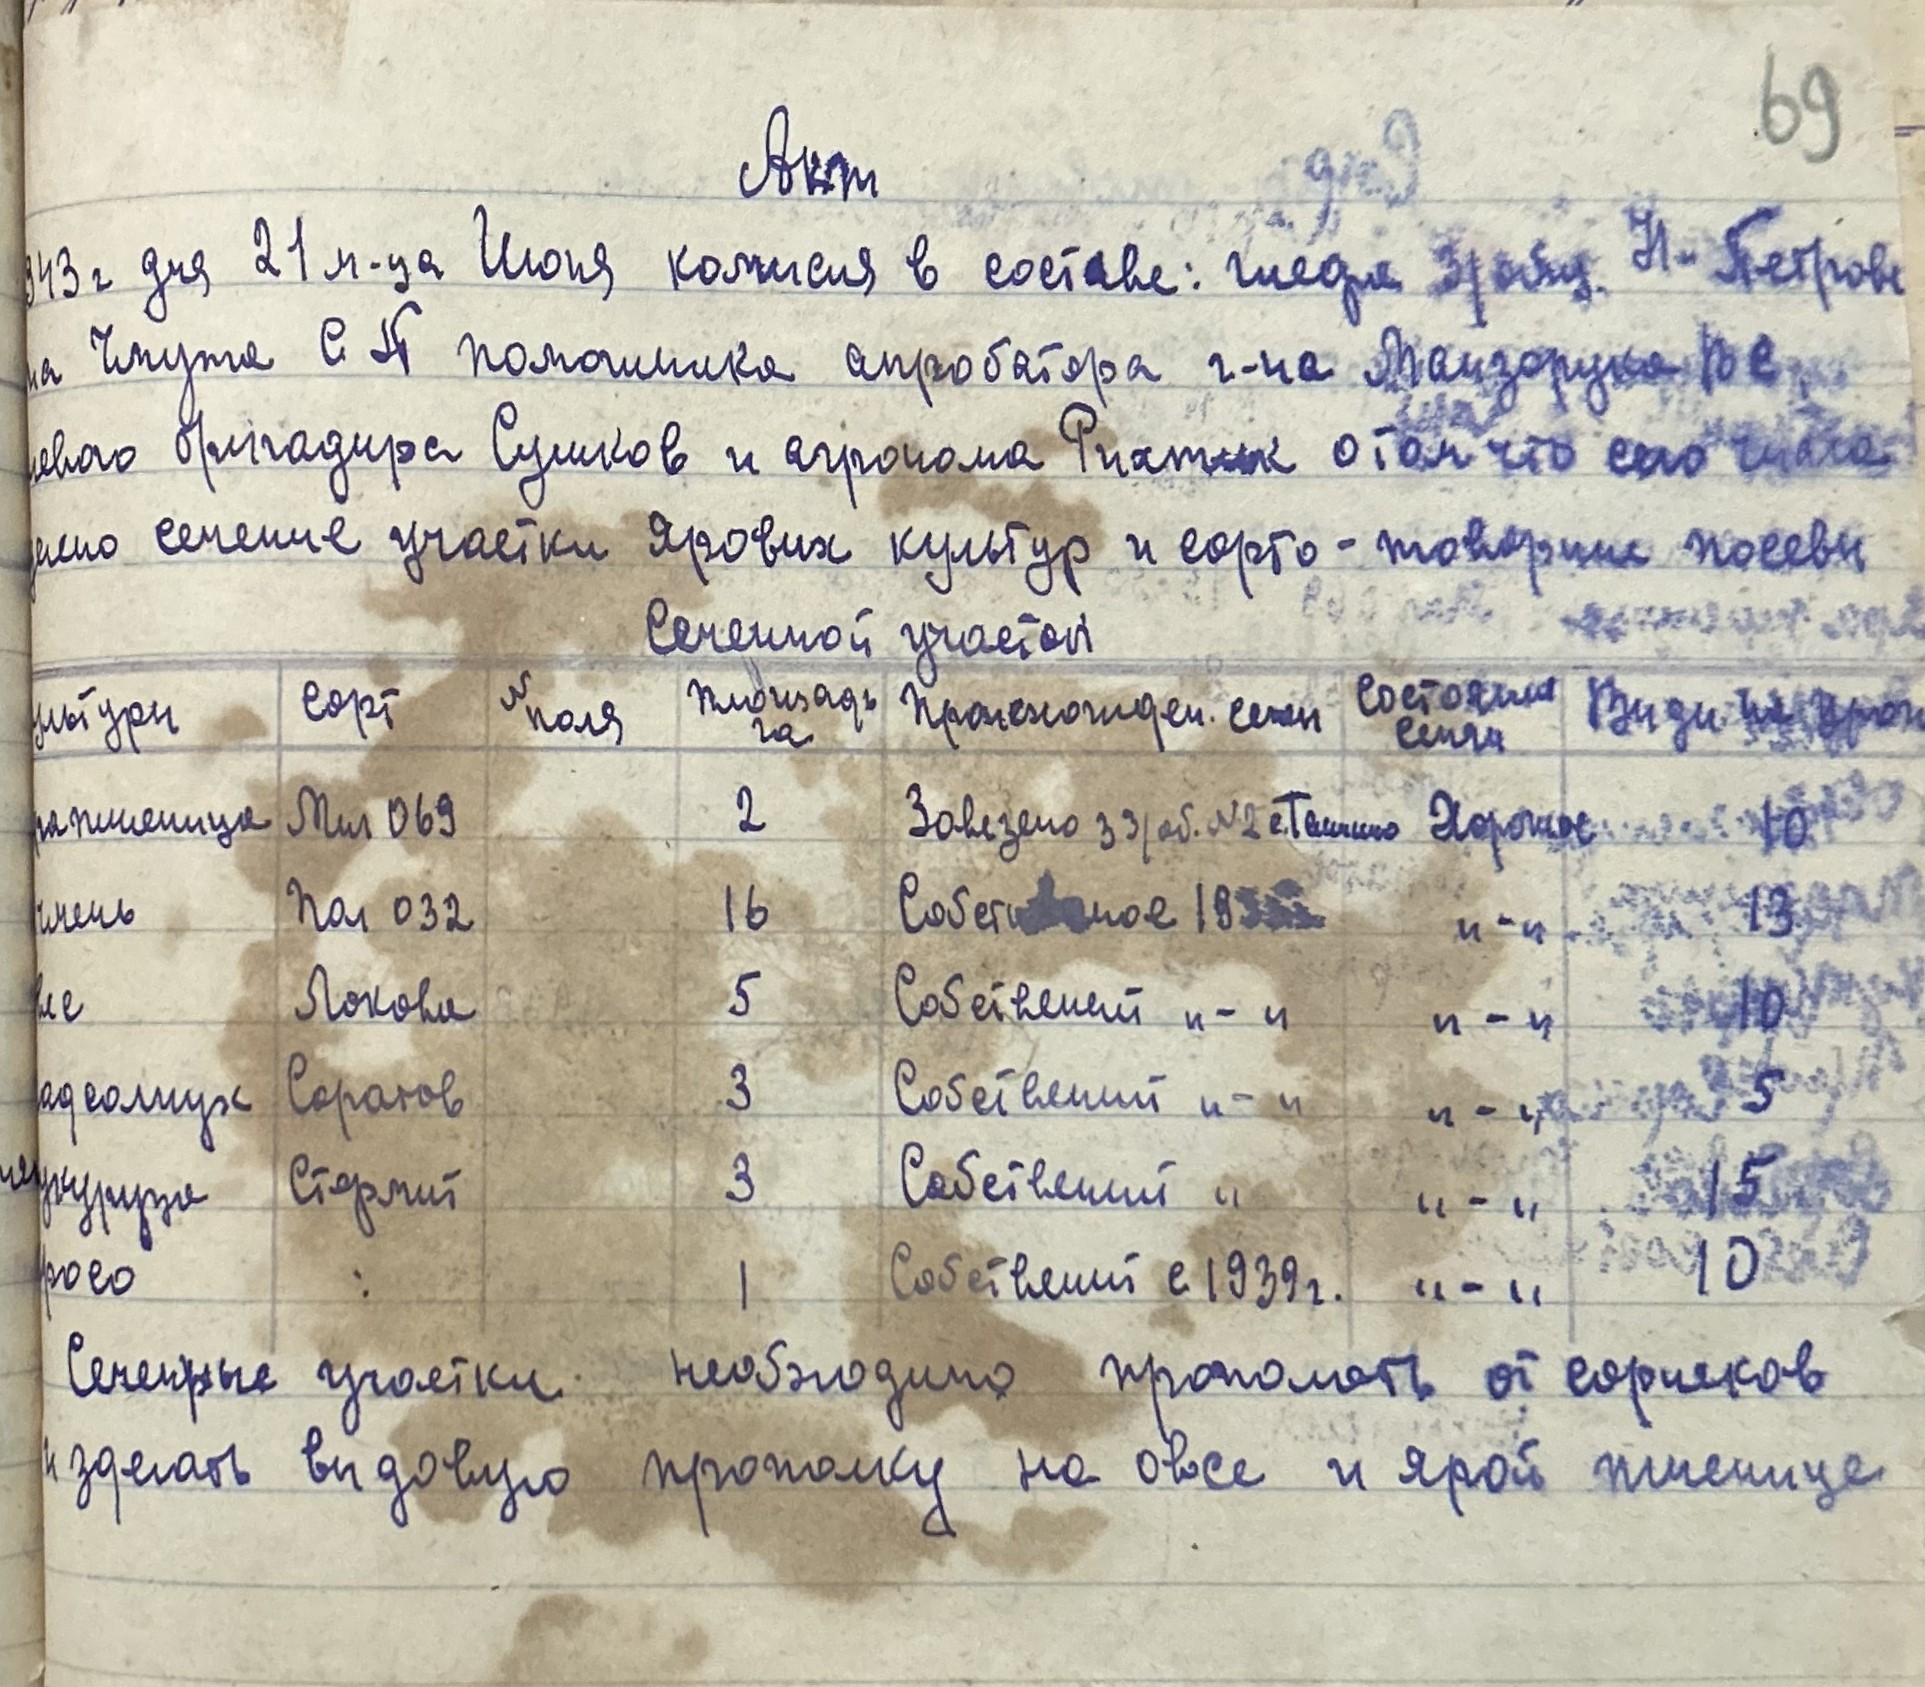 69
Акт
943 г дня 21 м-ца Июня комисия в составе: З/общ. Н-Петровк
на С П помошника апробатора г-на Манзорука П С
евого бригадира Сушков и агронома о том что сего числа
сечение участки ярових культур и сорто-товарние посевы
Сеченной участок
ультури сорт № поля площадь га Происхожден. семян Состояние семян Види на урож
рапшеница Мил 069 2 Завезено з З/об. №2 с. Хорошое 10
чмень Пал 032 16 Собственое 19 "-" 13
вес Лохова 5 Собствений "-" "-" 10
адсолнух Соратов 3 Собствений "-" "-" 5
укуруза Стермит 3 Собствений " "-" 15
росо : 1 Собствений с 1939 г. "-" 10
Сеченные участки необходимо прополоть от сорняков
и зделать видовую прополку на овсе и ярой пшенице